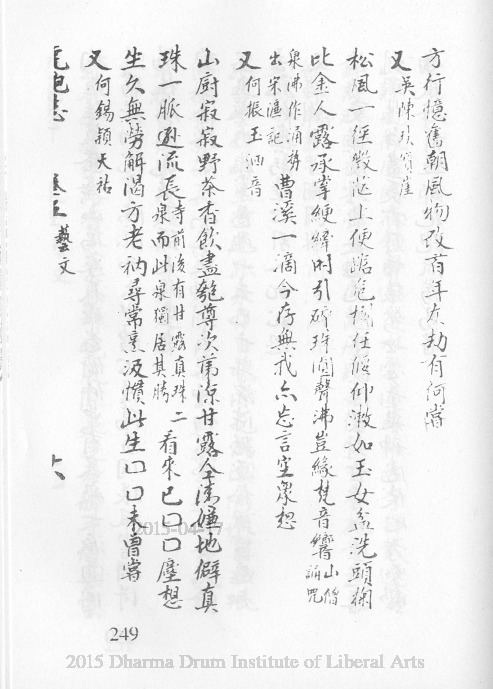 方行憶舊朝風物改百年灰劫有何嘗
又吳陳琰寶崖
松風一徑數從上便踏危橋任俯仰潄如玉女盆洗頭掬
比金人露承掌綆縴时引碎珠圓聲沸豈緣梵音響山僧誦咒
泉沸作涌勢出宋濂記曹溪一滴今存無我亦忘言空眾想
又何振玉洄音
山廚寂寂野茶香飲盡匏尊次第涼甘露全湮偏地僻真
珠一脈逊流長寺前後有甘露真珠二泉而此泉獨居其勝看來已口口塵想
生久無勞解渴方老衲尋常烹汲慣此生口口未曾嘗
又何錫穎大祐
虎跑志
卷五
藝文
六
2015-04-17
249
2015 Dharma Drum Institute of Liberal Arts